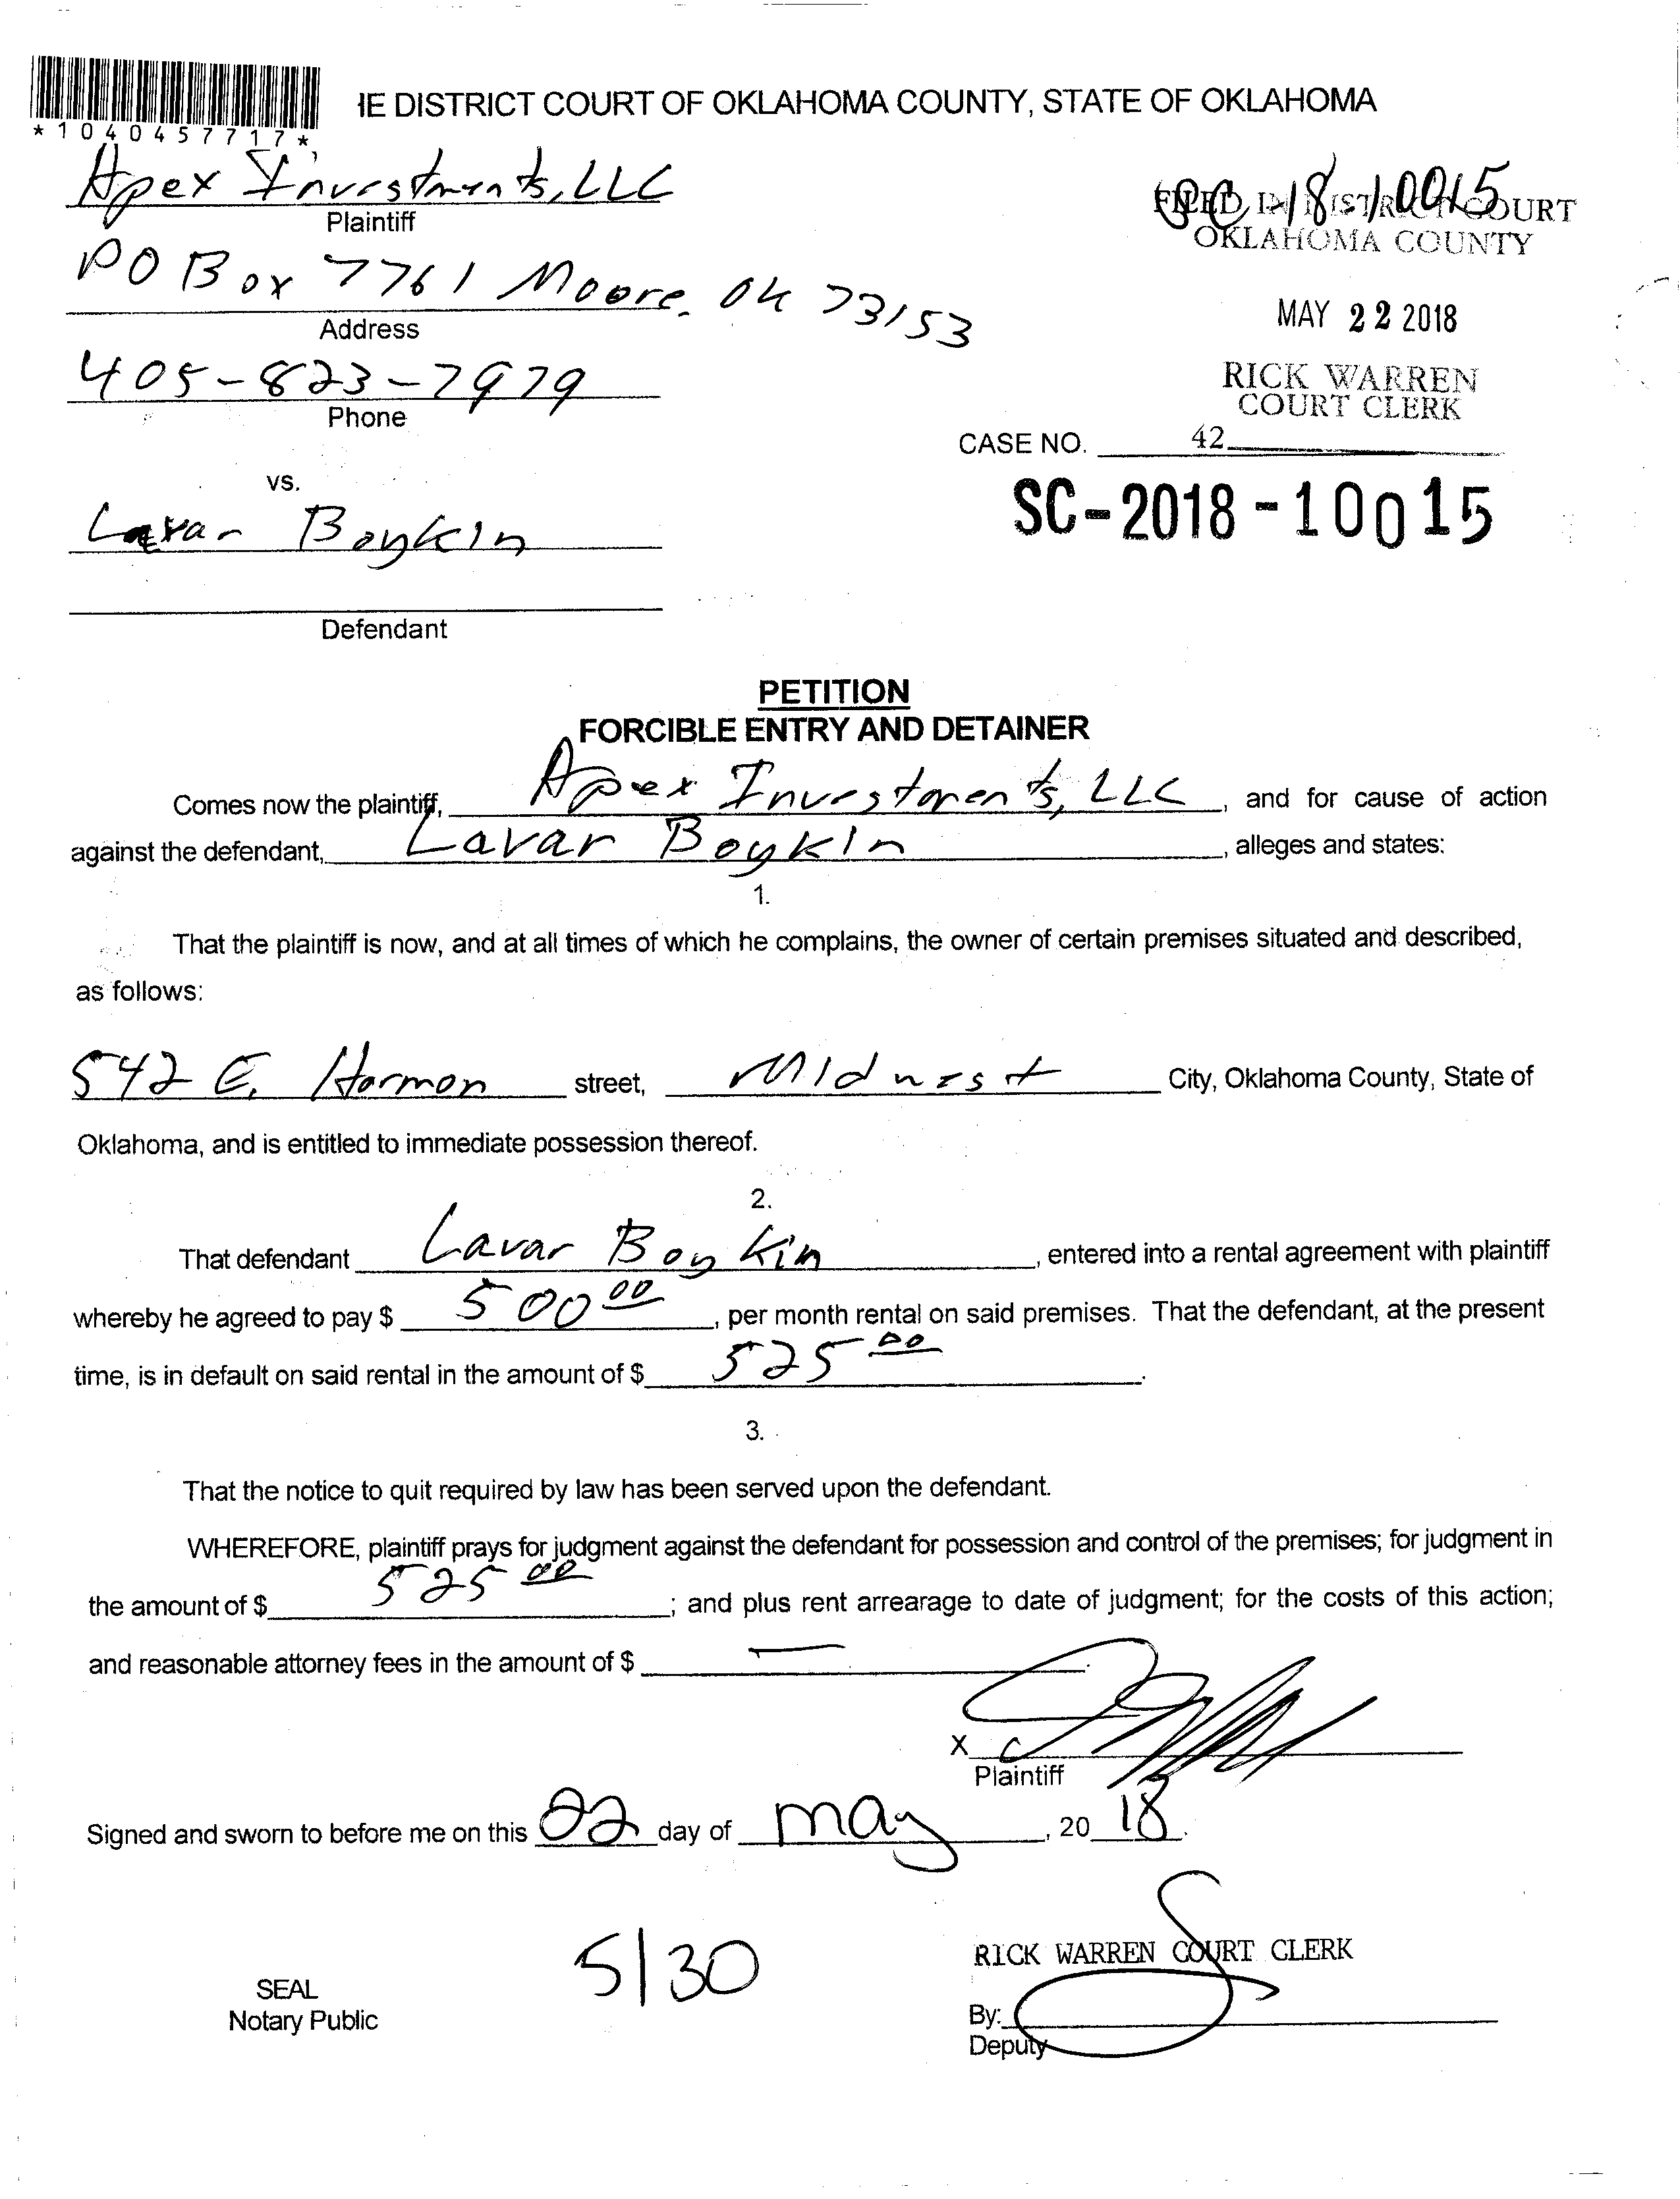 *1040457717*
IE DISTRICT COURT OF OKLAHOMA COUNTY, STATE OF OKLAHOMA
Apex Investments, LLC
Plaintiff
SC-18-10015
FILED IN DISTRICT COURT
OKLAHOMA COUNTY
PO Box 7761 Moore, OK 73153
Address
MAY 22 2018
405-823-7979
Phone
RICK WARREN
COURT CLERK
CASE NO. 42
vs.
SC-2018-10015
Lavar Boykin
Defendant
PETITION
FORCIBLE ENTRY AND DETAINER
Comes now the plaintiff, Apex Investments, LLC, and for cause of action
against the defendant, Lavar Boykin, alleges and states:
1.
That the plaintiff is now, and at all times of which he complains, the owner of certain premises situated and described,
as follows:
542 E. Harmon street, Midwest City, Oklahoma County, State of
Oklahoma, and is entitled to immediate possession thereof.
2.
That defendant Lavar Boykin, entered into a rental agreement with plaintiff
whereby he agreed to pay $ 500 00, per month rental on said premises. That the defendant, at the present
time, is in default on said rental in the amount of $ 525 00.
3.
That the notice to quit required by law has been served upon the defendant.
WHEREFORE, plaintiff prays for judgment against the defendant for possession and control of the premises; for judgment in
the amount of $ 525 00; and plus rent arrearage to date of judgment; for the costs of this action;
and reasonable attorney fees in the amount of $ —.
X
Plaintiff
Signed and sworn to before me on this 22 day of May, 20 18.
5/30
RICK WARREN COURT CLERK
SEAL
Notary Public
By:
Deputy